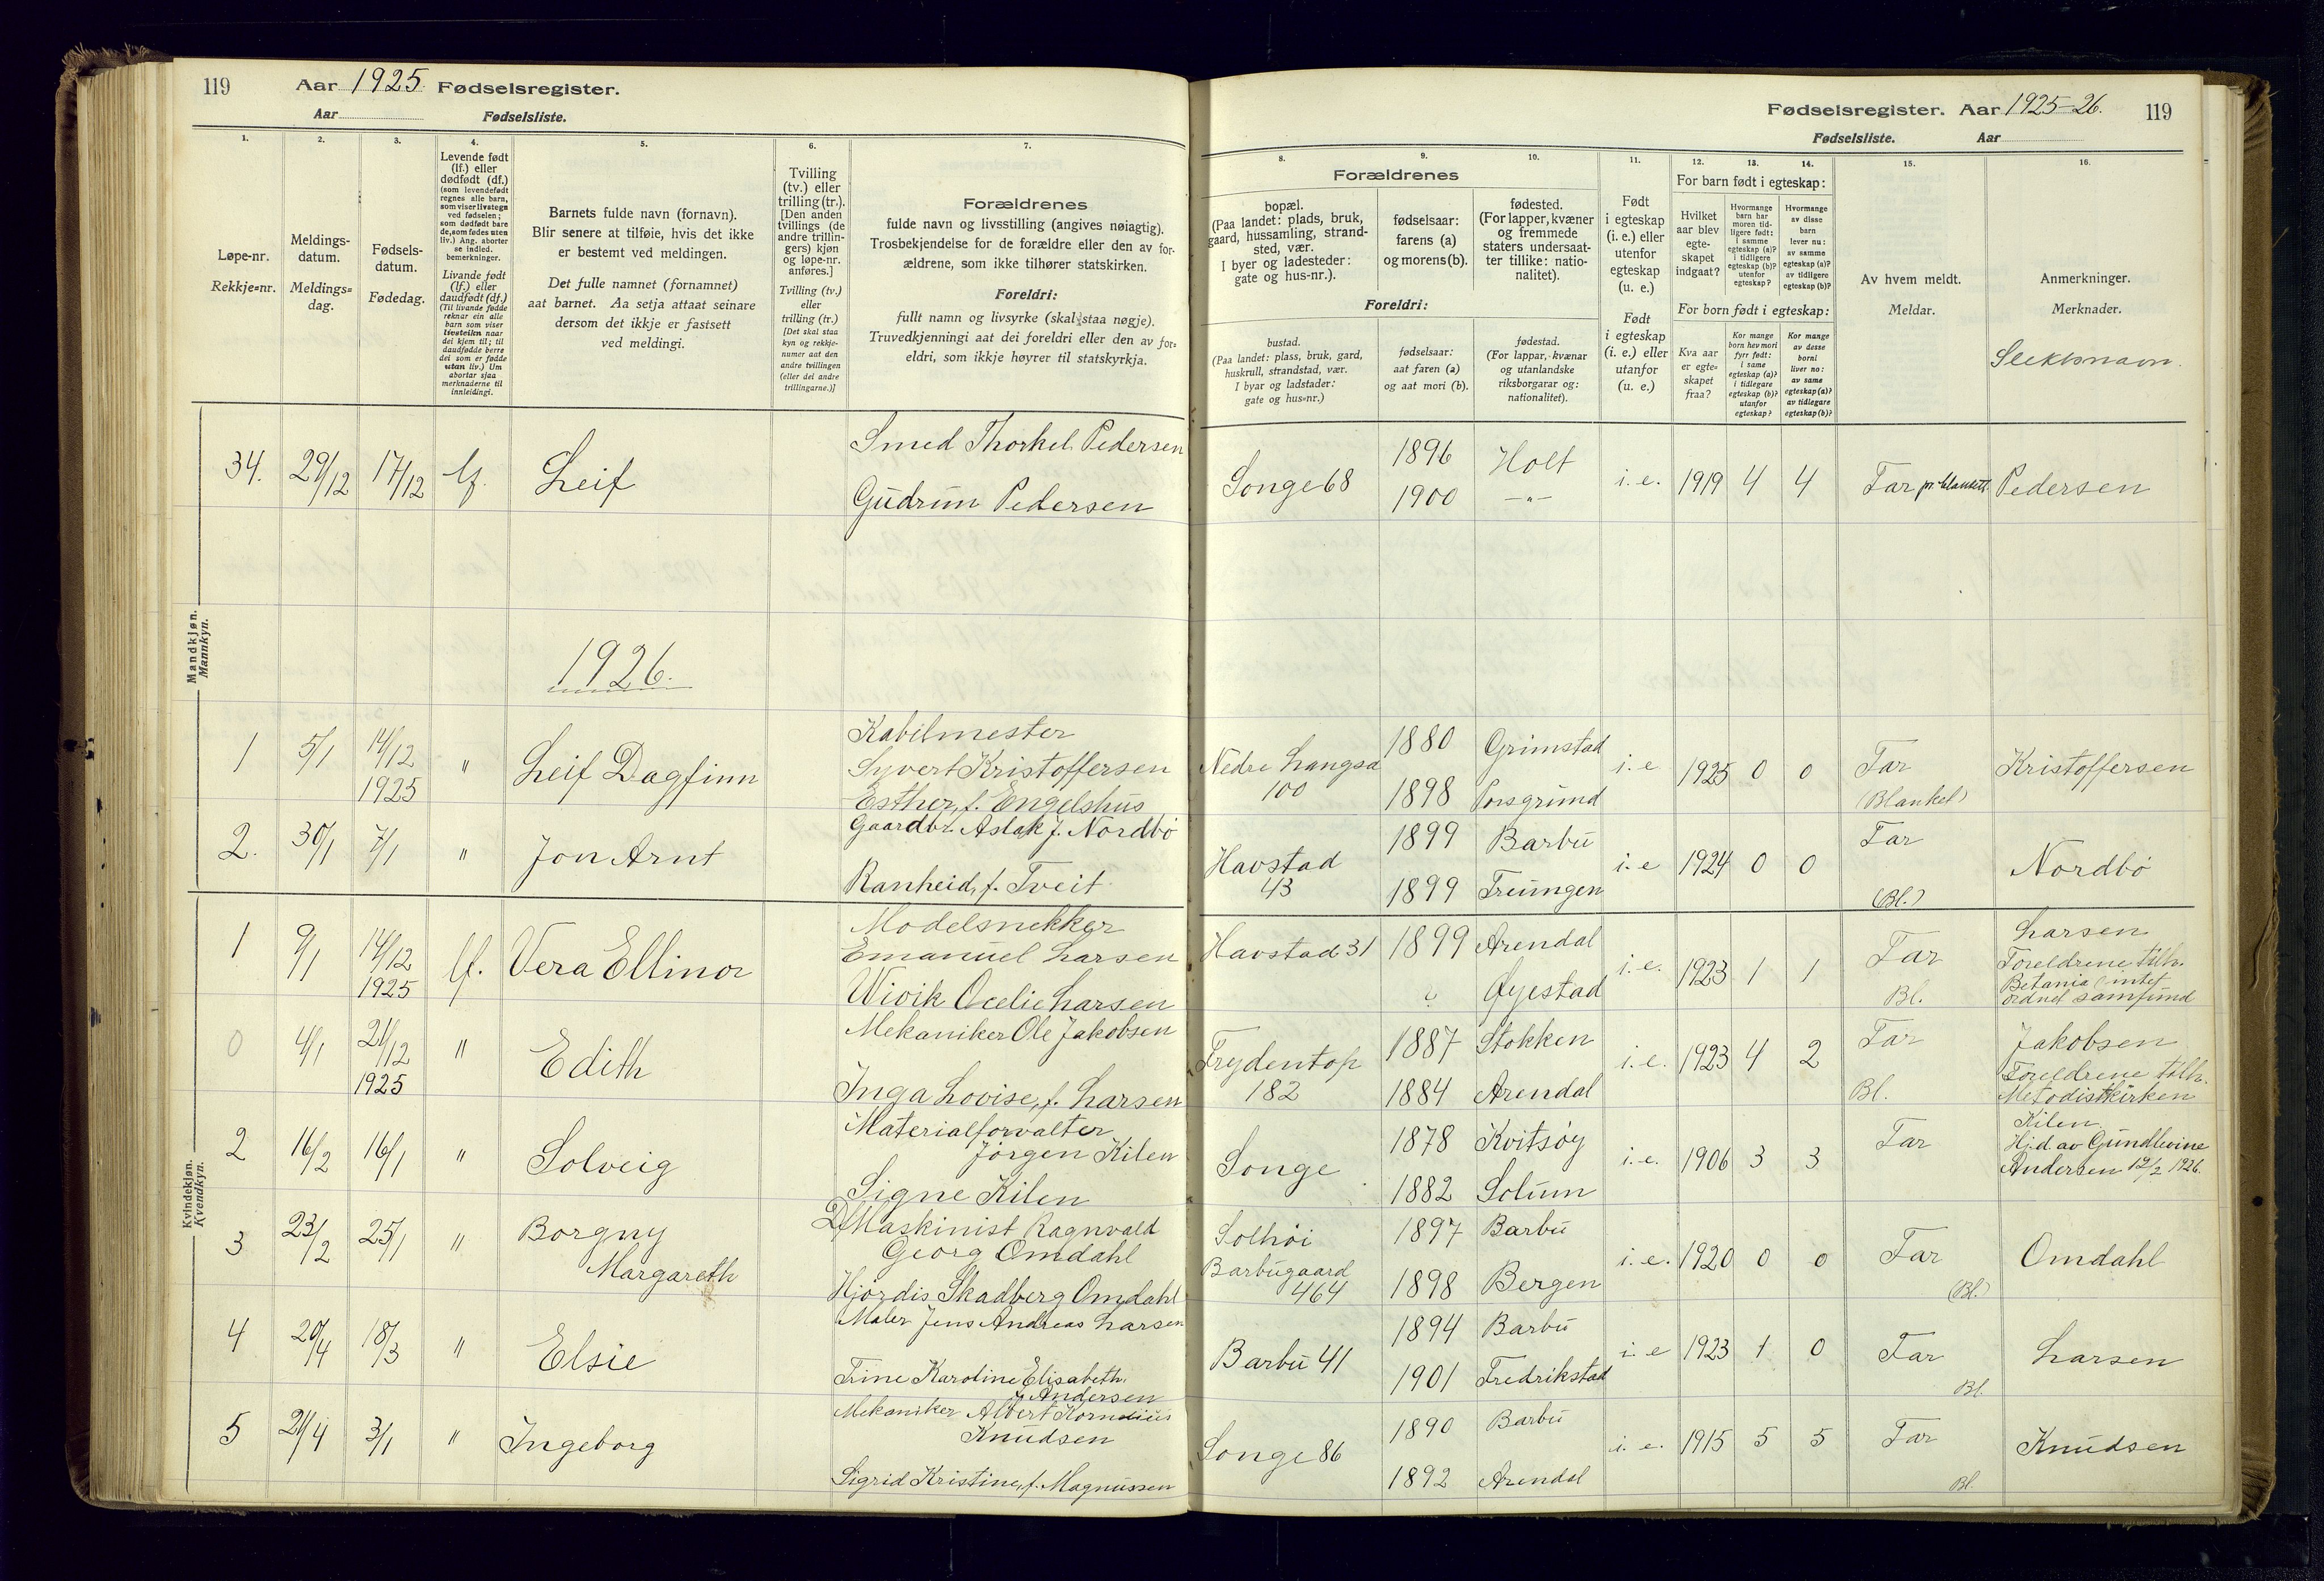 119 Aar 1925 Fødselsregister.
Aar Fødselsliste.
Fødselsregister. Aar 1925-26. 119
Fødselsliste. Aar
1. 2. 3. 4. 5. 6. 7.
Løpe-nr.
Rekkje=nr.
Meldings-
datum.
Meldings=
dag.
Fødsels-
datum.
Fødedag.
Levende født
(lf.) eller
dødfødt (df.)
(som levendefødt
regnes alle barn,
som viser livstegn
ved fødselen;
som dødfødt bare
de, som fødes uten
liv.) Ang. aborter
se indled.
bemerkninger.
Livande født
(lf.) eller
daudfødt (df.)
(Til livande fødde
reknar ein alle
barn som viser
livsteikn naar
dei kjem til; til
daudfødde berre
dei som er fødde
utan liv.) Um
abortar sjaa
merknaderne til
innleidingi.
Barnets fulde navn (fornavn).
Blir senere at tilføie, hvis det ikke
er bestemt ved meldingen.
Det fulle namnet (fornamnet)
aat barnet. Aa setja attaat seinare
dersom det ikkje er fastsett
ved meldingi.
Tvilling
(tv.) eller
trilling (tr.).
[Den anden
tvillings (de
andre trillin-
gers) kjøn
og løpe-nr.
anføres.]
Tvilling (tv.)
eller
trilling (tr.)
[Det skal staa
kyn og rekkje-
numer aat den
andre tvillingen
(eller dei andre
trillingarne.)]
Forældrenes
fulde navn og livsstilling (angives nøiagtig).
Trosbekjendelse for de forældre eller den av for-
ældrene, som ikke tilhører statskirken.
Foreldri:
fullt namn og livsyrke (skal staa nøgje).
Truvedkjenningi aat dei foreldri eller den av for=
eldri, som ikkje høyrer til statskyrkja.
8. 9. 10. 11. 12. 13. 14. 15. 16.
Forældrenes
bopæl.
(Paa landet: plads, bruk,
gaard, hussamling, strand-
sted, vær.
I byer og ladesteder:
gate og hus-nr.).
fødselsaar:
farens (a)
og morens (b).
fødested.
(For lapper, kvæner
og fremmede
staters undersaat-
ter tillike: natio-
nalitet).
Foreldri:
bustad.
(Paa landet: plass, bruk, gard,
huskrull, strandstad, vær.
I byar og ladstader:
gate og hus=nr.)
fødselsaar:
aat faren (a)
og aat mori (b).
fødestad.
(For lappar, kvænar
og utanlandske
riksborgarar og:
nationalitet).
Født
i egteskap
(i. e.) eller
utenfor
egteskap
(u. e.)
Født
i egteskap
(i. e.) eller
utanfor
(u. e.)
For barn født i egteskap:
Hvilket
aar blev
egte-
skapet
indgaat?
Hvormange
barn har
moren tid-
ligere født:
i samme
egteskap (a)?
i tidligere
egteskap (b)?
utenfor
egteskap?
Hvormange
av disse
barn
lever nu:
av samme
egteskap (a)?
av tidligere
egteskap (b)?
For born født i egteskap:
Kva aar
er egte=
skapet
fraa?
Kor mange
born hev mori
fyrr født:
i same
egteskap (a)?
i tidlegare
egteskap (b)?
utanfor
egteskap?
Kor mange
av desse
borni
liver no:
av same
egteskap (a)?
av tidlegare
egteskap (b)?
Av hvem meldt.
Meldar.
Anmerkninger.
Merknader.
Slektsnavn.
Mandkjøn.
Mannkyn.
34. 29/12 17/12 lf. Leif Smed Thorkel Pedersen
Gudrun Pedersen
Songe 68 1896 Holt i. e. 1919 4 4 Far pr. blankett Pedersen
1900 —"—
1926.
1 5/1 14/12 1925 " Leif Dagfinn Kabelmester
Syvert Kristoffersen
Esther, f. Engelshus
Nedre Langsæ 100 1880 Grimstad i. e 1925 0 0 Far (Blanket) Kristoffersen
1898 Porsgrund
2. 30/1 7/1 " Jon Arnt Gaardbr. Aslak J. Nordbö
Ranheid, f. Tveit
Havstad 43 1899 Barbu i. e 1924 0 0 Far (Bl.) Nordbö
1899 Treungen
Kvindekjøn.
Kvendkyn.
1 9/1 14/12 1925 lf. Vera Ellinor Modelsnekker
Emanuel Larsen
Wivik Ocelie Larsen
Havstad 31 1899 Arendal i. e. 1923 1 1 Far Bl. Larsen
? Øyestad
Foreldrene tilh.
Betania (intet
ordnet samfund
0 4/1 21/12 1925 " Edith Mekaniker Ole Jakobsen
Inga Lovise, f. Larsen
Frydentop 182 1887 Stokken i. e. 1923 4 2 Far Bl. Jakobsen
1884 Arendal
Foreldrene tilh.
Metodistkirken
2 16/2 16/1 " Solveig Materialforvalter
Jörgen Kilen
Signe Kilen
Songe 1878 Kvitsøy i. e. 1906 3 3 Far Kilen
1882 Solum
Hjd. av Gundlevine
Andersen 12/2 1926.
3 23/2 25/1 " Borgny
Margareth
D/Maskinist Ragnvald
Georg Omdahl
Hjördis Skadberg Omdahl
Solhöi
Barbugaard
464
1897 Barbu i. e. 1920 0 0 Far (Bl.) Omdahl
1898 Bergen
4 20/4 18/3 " Elsie Maler Jens Andreas Larsen
Trine Karoline Elisabeth
f. Andersen
Barbu 41 1894 Barbu i. e 1923 1 0 Far Bl. Larsen
1901 Fredrikstad
5 21/4 3/1 " Ingeborg Mekaniker Albert Kornelius
Knudsen
Sigrid Kristine, f. Magnussen
Songe 86 1890 Barbu i. e. 1915 5 5 Far Bl. Knudsen
1892 Arendal